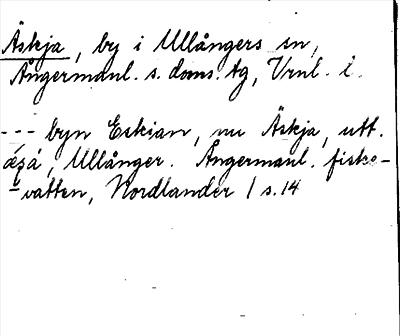 Äskja, by i Ullångers sn,
Ångermanl. s. doms. tg, Vrnl. l.
--- byn Eskian, nu Äskja, utt.
Ullånger. Ångermanl. fiske-
vatten, Nordlander / s. 14